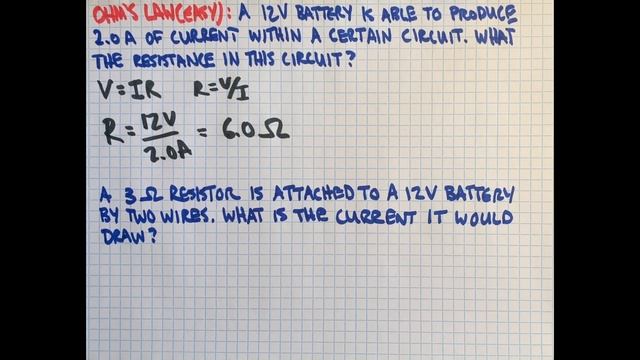 OHM'S LAW(EASY): A 12V BATTERY IS ABLE TO PRODUCE
2.0A OF CURRENT WITHIN A CERTAIN CIRCUIT. WHAT
THE RESISTANCE IN THIS CIRCUIT?
V=IR R=V/I
R = 12V/2.0A = 6.0Ω
A 3Ω RESISTOR IS ATTACHED TO A 12V BATTERY
BY TWO WIRES. WHAT IS THE CURRENT IT WOULD
DRAW?